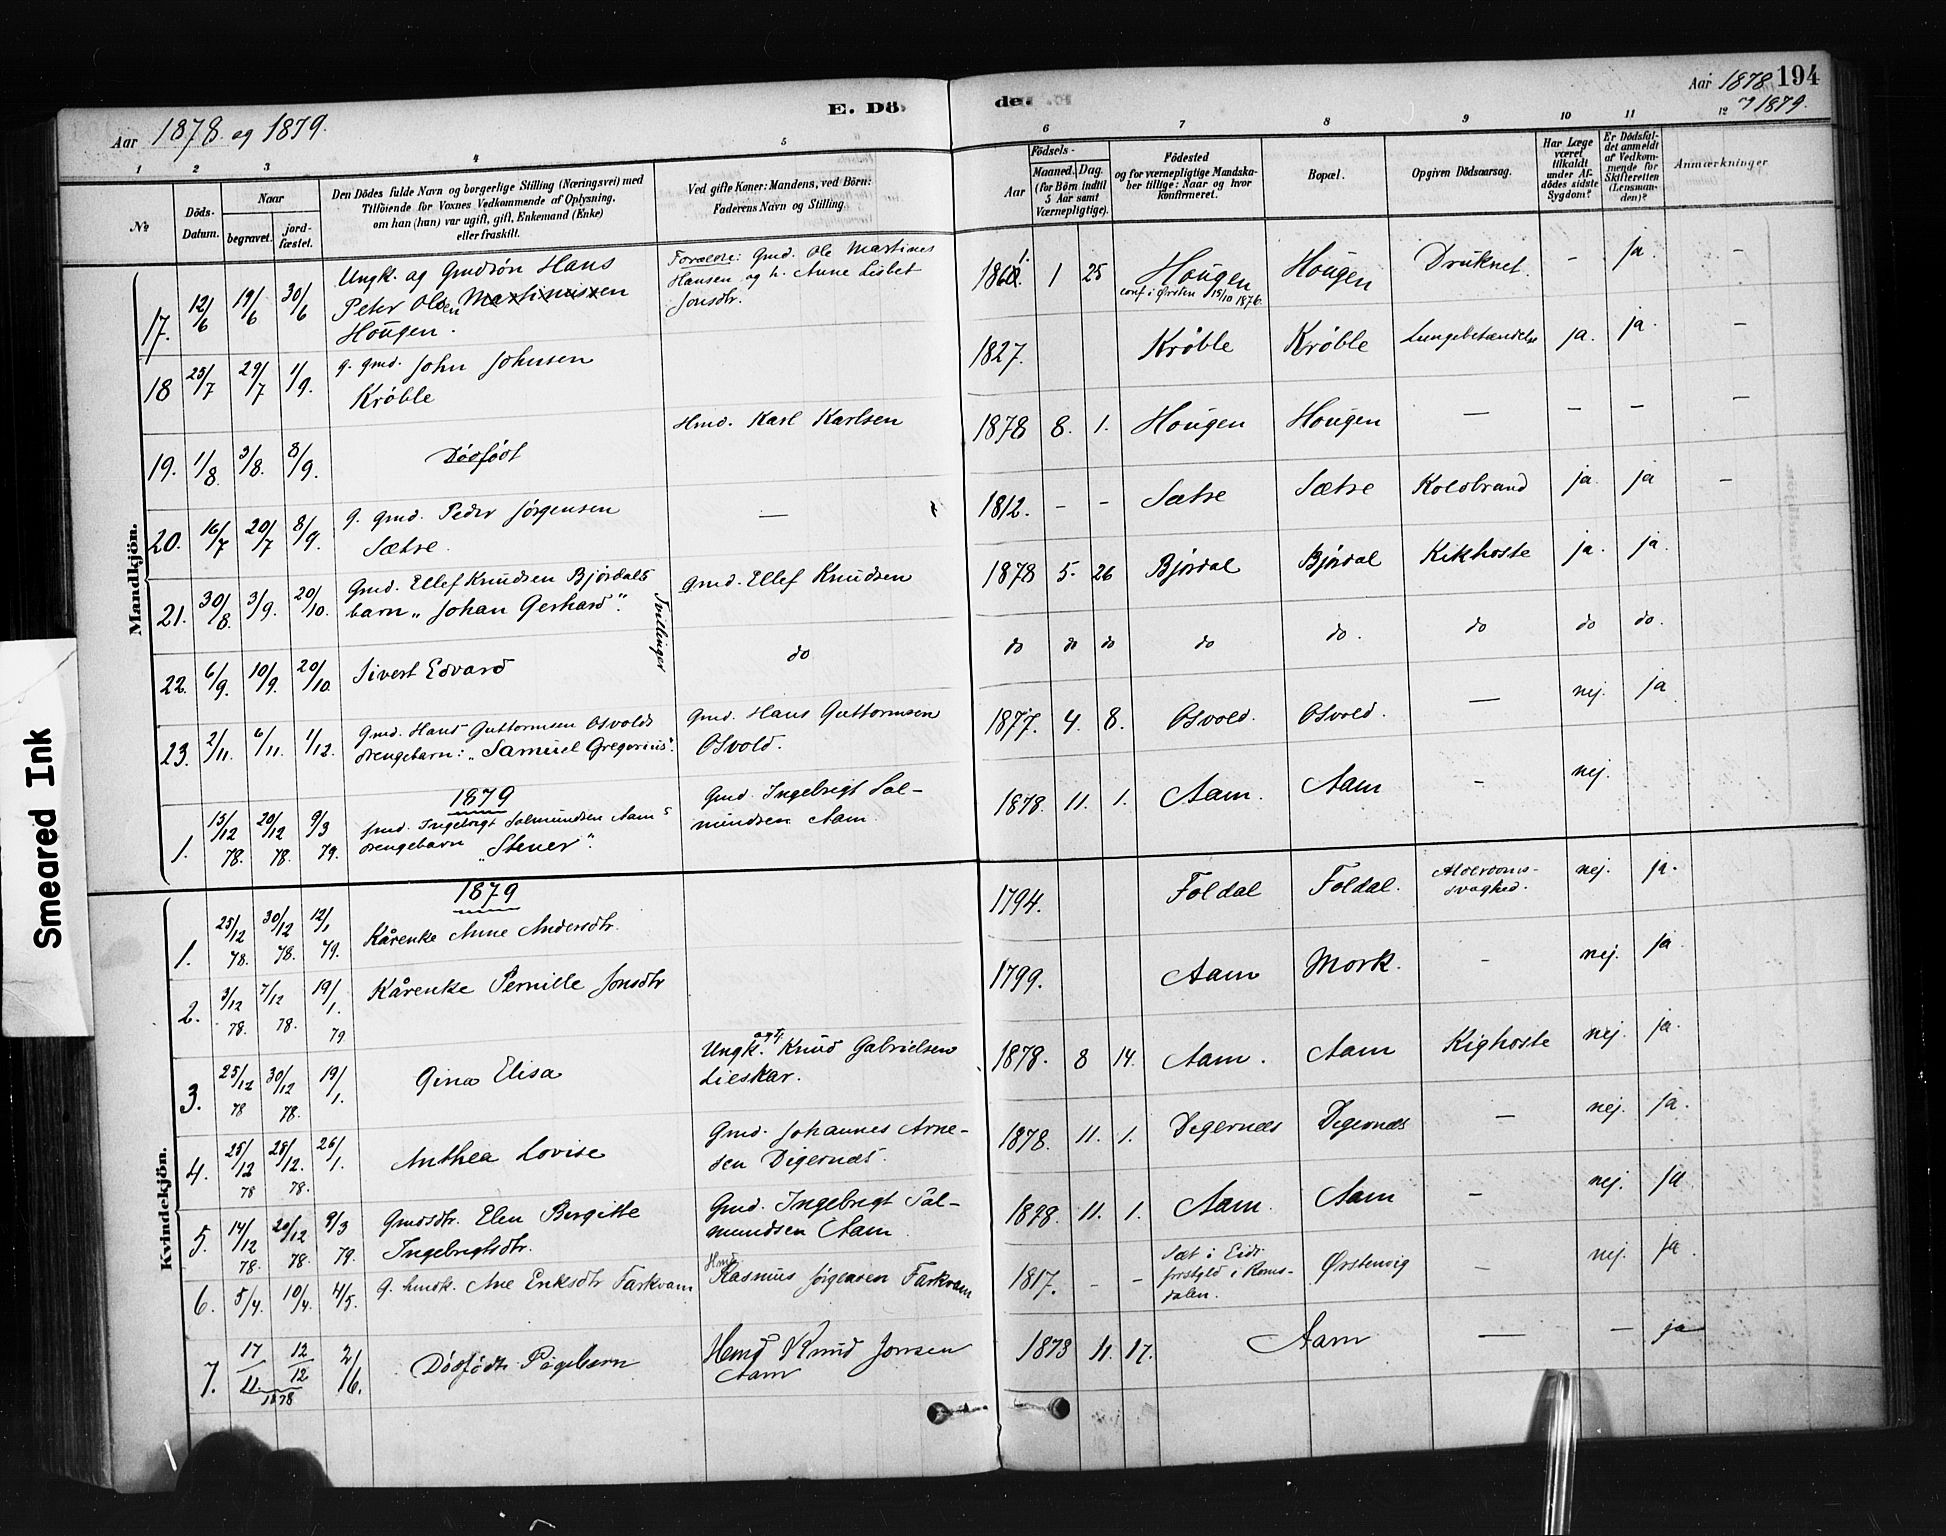 Aar 1878 og 1879.
E. Dö.
de
Aar 1878 194
og 1879.
1 2 3 4 5 6 7 8 9 10 11 12
№
Döds-Datum.
Naar
begravet.
jord-fæstet.
Den Dödes fulde Navn og borgerlige Stilling (Næringsvei) med
Tilföiende for Voxnes Vedkommende af Oplysning,
om han (hun) var ugift, gift, Enkemand (Enke)
eller fraskilt.
Ved gifte Koner: Mandens, ved Börn:
Faderens Navn og Stilling.
Födsels-
Aar
Maaned. Dag.
(for Börn indtil
5 Aar samt
Værnepligtige).
Födested
og for værnepligtige Mandska-
ber tillige: Naar og hvor
konfirmeret.
Bopæl.
Opgiven Dödsaarsag.
Har Læge
været
tilkaldt
under Af-
dödes sidste
Sygdom?
Er Dödsfal-
det anmeldt
af Vedkom-
mende for
Skifteretten
(Lensman-
den)?
Anmærkninger
Mandkjön.
17. 12/6 19/6 30/6 Ungk. og Gmdsøn Hans
Peter Olsen Martinussen
Hougen.
Forældre: Gmd. Ole Martinus
Hansen og h. Anne Lisbet
Jonsdtr.
1861. 1 25 Hougen Hougen Druknet. - Ja. -
conf i Ørsten 15/10 1876.
18 25/7 29/7 1/9. g. gmd. John Johnsen
Krøble
1827. Krøble Krøble Lungebetændelse ja. ja. -
19. 1/8. 3/8. 8/9. Dødfødt Hmd. Karl Karlsen 1878 8. 1. Hougen Hougen - - - -
20. 16/7 20/7 8/9. g. gmd. Peder Jørgensen
Sætre.
- 1812. - - Sætre Sætre Koldbrand ja. ja -
21. 30/8. 3/9. 20/10. Gmd. Ellef Knudsen Bjørdals
barn „Johan Gerhard".
Tvillinger
Gmd. Ellef Knudsen 1878 5. 26 Bjørdal Bjørdal Kikhoste ja. ja.
22. 6/9. 10/9. 20/10. Sivert Edvard do do do do do do. do do do.
23. 2/11. 6/11. 1/12. Gmd. Hans Guttormsen Osvolds
drengebarn: „Samuel Gregorius".
Gmd. Hans Guttormsen
Osvold.
1877. 4. 8. Osvold. Osvold. - nej. ja
1879
1. 15/12 78. 20/12 78. 9/3 79. Gmd. Ingebrigt Salmundsen Aams
drengebarn „Stener".
Gmd. Ingebrigt Sal-
mundsen Aam.
1878. 11. 1. Aam. Aam - nej.
Kvindekjön.
1879
1. 25/12 78. 30/12 78. 12/1 79. Kårenke Anne Andersdtr. 1794. Foldal Foldal. Alderdoms-
svaghed.
nej. ja.
2. 3/12 78. 7/12 78. 19/1. 79 Kårenke Pernille Jonsdtr 1799. Aam Mork. - nej. ja
3. 25/12 78 30/12 78. 19/1. Gina Elisa Ungk. Knud Gabrielsen
Lieskar.
1878. 8 14. Aam. Aam Kighoste nej. ja.
4. 25/12 78 28/12. 78. 26/1. Anthea Lovise Gmd. Johannes Arne-
sen Digernæs.
1878. 11. 1. Degernæs Degernæs - nej. ja.
5. 14/12 78. 20/12 78. 9/3 79. Gmdsdtr. Elen Birgitte
Ingebrigtsdtr.
Gmd. Ingebrigt Sal-
mundsen Aam.
1878. 11. 1. Aam. Aam - nej. ja
6. 5/4. 10/4. 4/5. g. hmdk. Ane Eriksdtr Farkvam Hmd
Rasmus Jørgensen Farkvam
1817. - - Sæt i Eids
prstgld i Roms-
dalen.
Ørstenvig - nej. ja.
7. 17/11 12/12 1878 2/6. Dødfødt Pigebarn Hmd Knud Jonsen
Aam
1878 11. 17. Aam - - ja
Smeared Ink